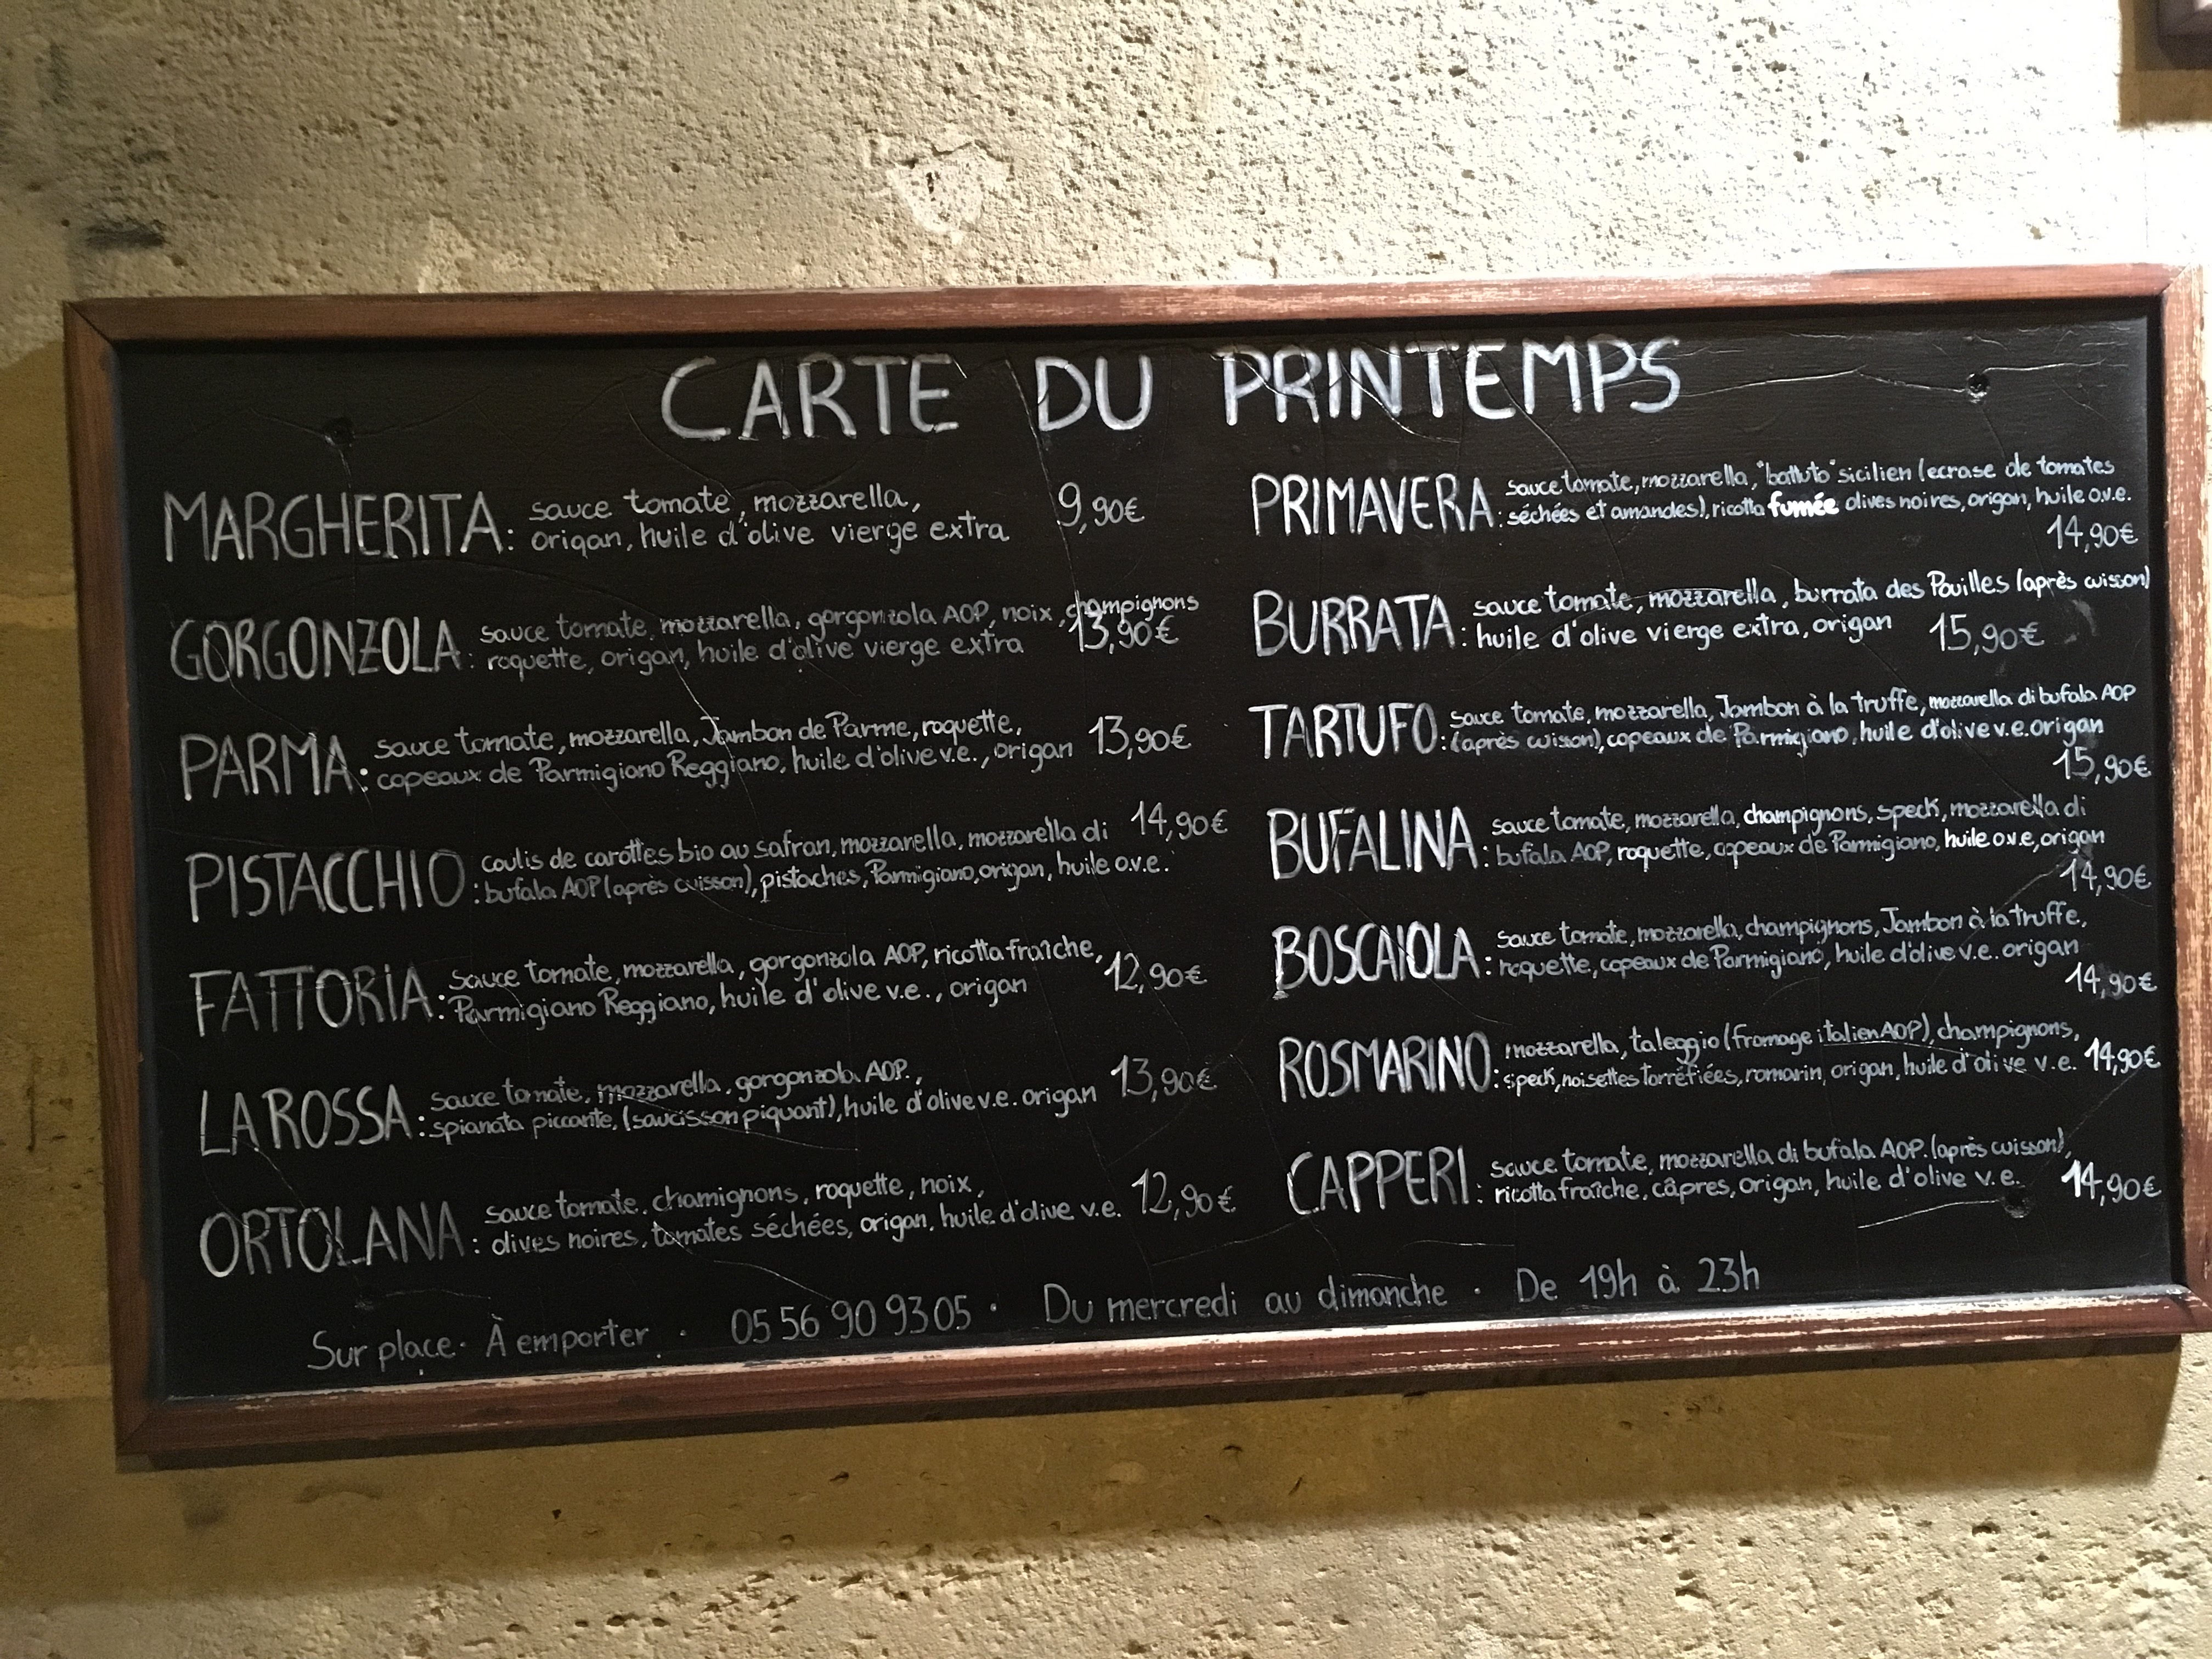 CARTE DU PRINTEMPS
MARGHERITA: sauce tomate, mozzarella, 9,90€
origan, huile d'olive vierge extra
GORGONZOLA: sauce tomate, mozzarella, gorgonzola AOP, noix, champignons
roquette, origan, huile d'olive vierge extra 13,90€
PARMA: sauce tomate, mozzarella, Jambon de Parme, roquette, 13,90€
copeaux de Parmigiano Reggiano, huile d'olive v.e., origan
PISTACCHIO: coulis de carottes bio au safran, mozzarella, mozzarella di 14,90€
bufala AOP (après cuisson), pistaches, Parmigiano, origan, huile o.v.e.
FATTORIA: sauce tomate, mozzarella, gorgonzola AOP, ricotta fraîche, 12,90€
Parmigiano Reggiano, huile d'olive v.e., origan
LA ROSSA: sauce tomate, mozzarella, gorgonzola AOP., 13,90€
spianata piccante, (saucisson piquant), huile d'olive v.e. origan
ORTOLANA: sauce tomate, chamignons, roquette, noix, 12,90€
olives noires, tomates séchées, origan, huile d'olive v.e.
PRIMAVERA: sauce tomate, mozzarella, "battuto" sicilien (ecrase de tomates
séchées et amandes), ricotta fumée olives noires, origan, huile o.v.e.
14,90€
BURRATA: sauce tomate, mozzarella, burrata des Pouilles (après cuisson)
huile d'olive vierge extra, origan 15,90€
TARTUFO: sauce tomate, mozzarella, Jambon à la truffe, mozzarella di bufala AOP
(après cuisson), copeaux de Parmigiano, huile d'olive v.e. origan
15,90€
BUFALINA: sauce tomate, mozzarella, champignons, speck, mozzarella di
bufala AOP, roquette, copeaux de Parmigiano, huile o.v.e, origan
14,90€
BOSCAIOLA: sauce tomate, mozzarella, champignons, Jambon à la truffe,
roquette, copeaux de Parmigiano, huile d'olive v.e. origan
14,90€
ROSMARINO: mozzarella, taleggio (fromage italien AOP), champignons,
speck, noisettes torréfiées, romarin, origan, huile d'olive v.e. 14,90€
CAPPERI: sauce tomate, mozzarella di bufala AOP. (après cuisson),
ricotta fraîche, câpres, origan, huile d'olive v.e. 14,90€
Sur place · À emporter · 05 56 90 93 05 · Du mercredi au dimanche · De 19h à 23h